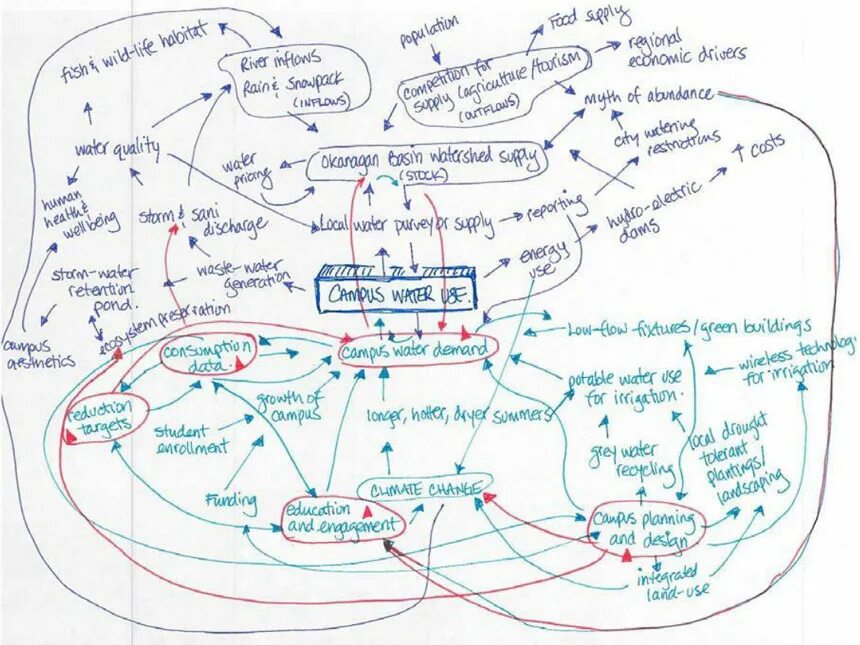 population
Food supply
regional
economic drivers
fish & wild-life habitat
River inflows
Rain & Snowpack
(INFLOWS)
competition for
supply (agriculture/tourism)
(OUTFLOWS)
myth of abundance
city watering
restrictions
costs
water quality
water
pricing
Okanagan Basin Watershed supply
(STOCK)
human
health &
wellbeing
storm & sani
discharge
Local water purveyor supply
reporting
hydro-electric
dams
energy
use
storm-water
retention
pond.
waste-water
generation
CAMPUS WATER USE.
ecosystem preservation
campus
aesthetics
consumption
data.
campus water demand
Low-flow-fixtures/green buildings
wireless technology
for irrigation
reduction
targets
growth of
campus
longer, hotter, dryer summers
potable water use
for irrigation.
student
enrollment
grey water
recycling
local drought
tolerant
plantings/
landscaping
Funding
CLIMATE CHANGE
education
and engagement
Campus planning
and design
integrated
land-use